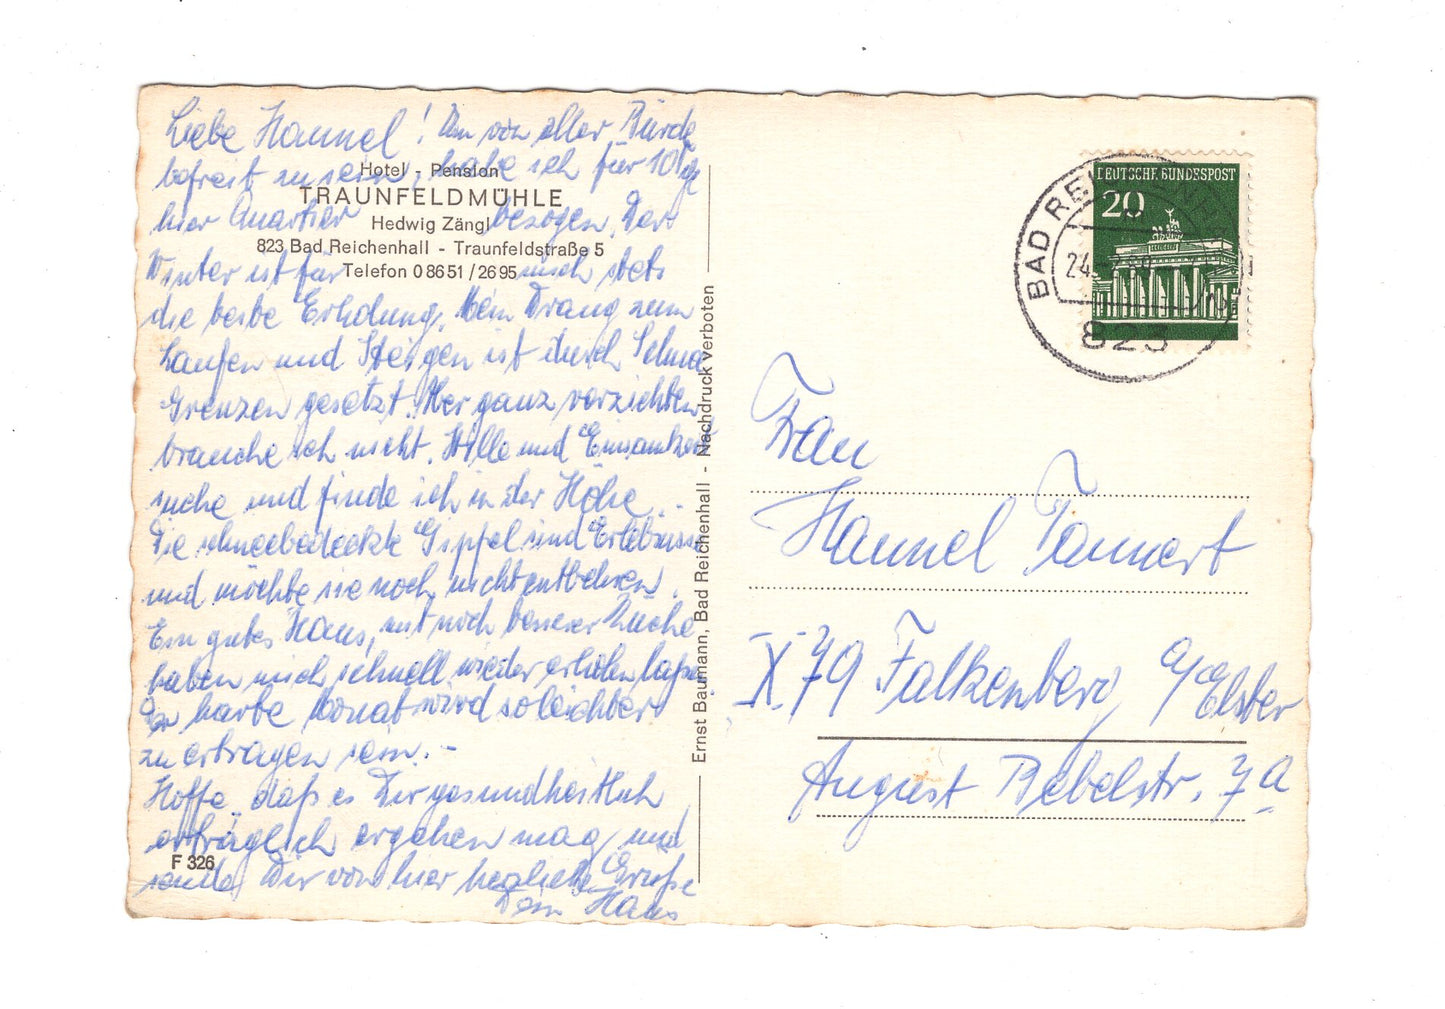 Liebe Hannel! Um von aller Bürde
befreit zu sein, habe ich für 10 Tge
Hotel - Pension
TRAUNFELDMÜHLE
hier Quartier bezogen. Der
Hedwig Zängl
823 Bad Reichenhall - Traunfeldstraße 5
Winter ist für mich stets
Telefon 0 86 51 / 26 95
die beste Erholung. Mein Drang zum
Laufen und Steigen ist durch
Grenzen gesetzt. Aber ganz verzichten
brauche ich nicht. Stille und Einsamkeit
suche und finde ich in der Höhe.
Die schneebedeckte Gipfel sind Erlebnisse
und möchte sie noch nicht entbehren.
Ein gutes Haus, mit noch besserer Küche
haben mich schnell wieder erholen lassen.
Der harte Monat wird so leichter
zu ertragen sein.-
Hoffe, daß es Dir gesundheitlich
erträglich ergehen mag, und
F 326
sende Dir von hier herzliche Grüße
Dein Hans
Ernst Baumann, Bad Reichenhall - Nachdruck verboten
BAD REICHENHALL
24.
823
DEUTSCHE BUNDESPOST
20
Frau
Hannel Tannert
X 79 Falkenberg a/Elster
August Bebelstr. 7a